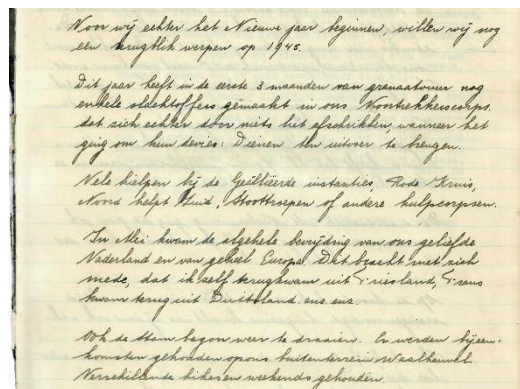 Voor wij echter het Nieuwe jaar beginnen, willen wij nog
een terugblik werpen op 1945.
Dit jaar heeft in de eerste 3 maanden van granaatvuur nog
enkele slachtoffers gemaakt in ons Voortrekkerscorps.
dat zich echter door niets liet afschrikken, wanneer het
ging om hun devies: Dienen ten uitvoer te brengen.
Vele hielpen bij de Geällieerde instanties, Rode Kruis,
Noord helpt Zuid, Stoottroepen of andere hulpcorpsen.
In Mei kwam de algehele bevrijding van ons geliefde
Nederland en van geheel Europa. Dit bracht met zich
mede, dat ik zelf terugkwam uit Friesland, Frans
kwam terug uit Duitsland. enz. enz.
Ook de Stam begon weer te draaien. Er werden bijeen-
komsten gehouden op ons buitenterrein Waalheuvel
Verschillende hikes en weekends gehouden.